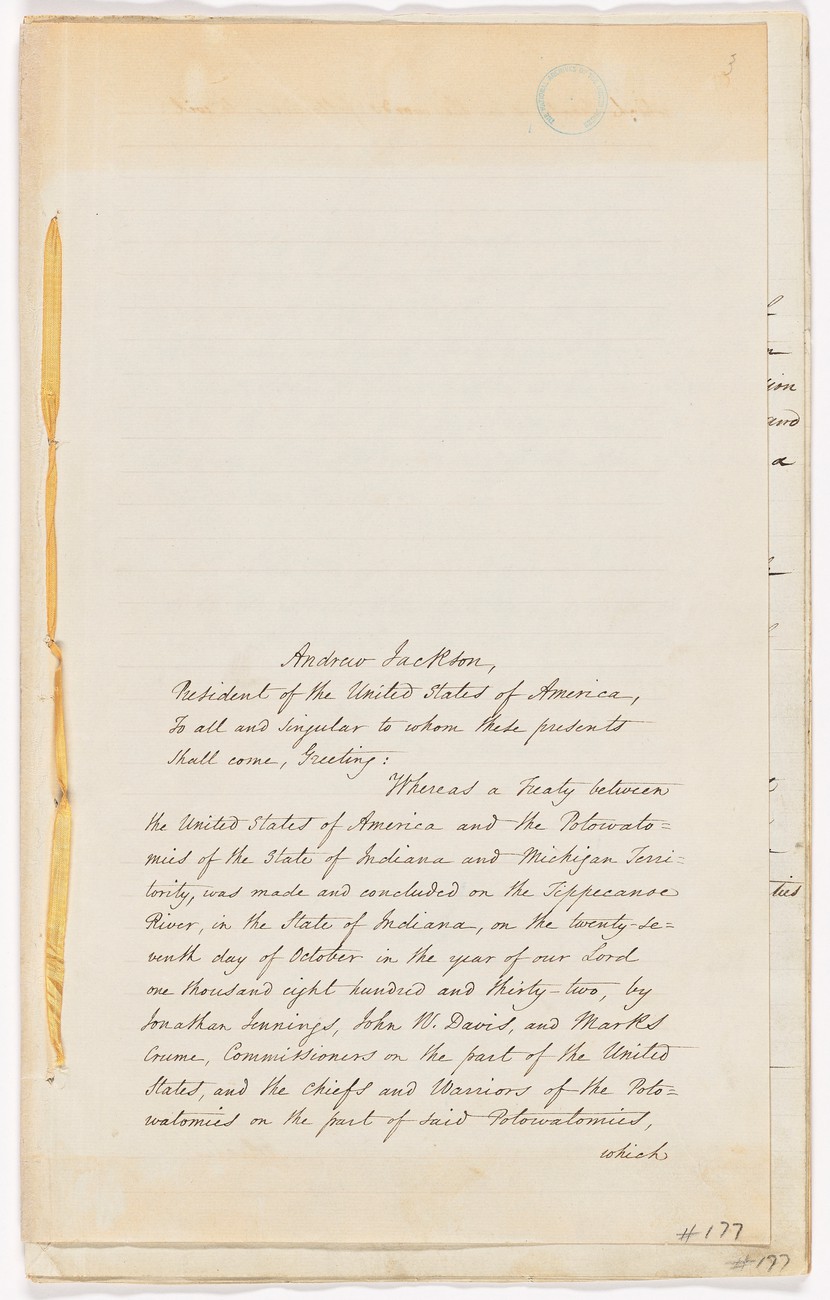 3
Andrew Jackson,
President of the United States of America,
To all and singular to whom these presents
shall come, Greeting:
Whereas a Treaty between
the United States of America and the Potowato=
mies of the State of Indiana and Michigan Terri=
tority, was made and concluded on the Tippecanoe
River, in the State of Indiana, on the twenty-se=
venth day of October in the year of our Lord
one thousand eight hundred and thirty-two, by
Jonathan Jennings, John W. Davis, and Marks
Crume, Commissioners on the part of the United
States, and the Chiefs and Warriors of the Poto=
watomies on the part of said Potowatomies,
which
#177
#177
and
a
ties